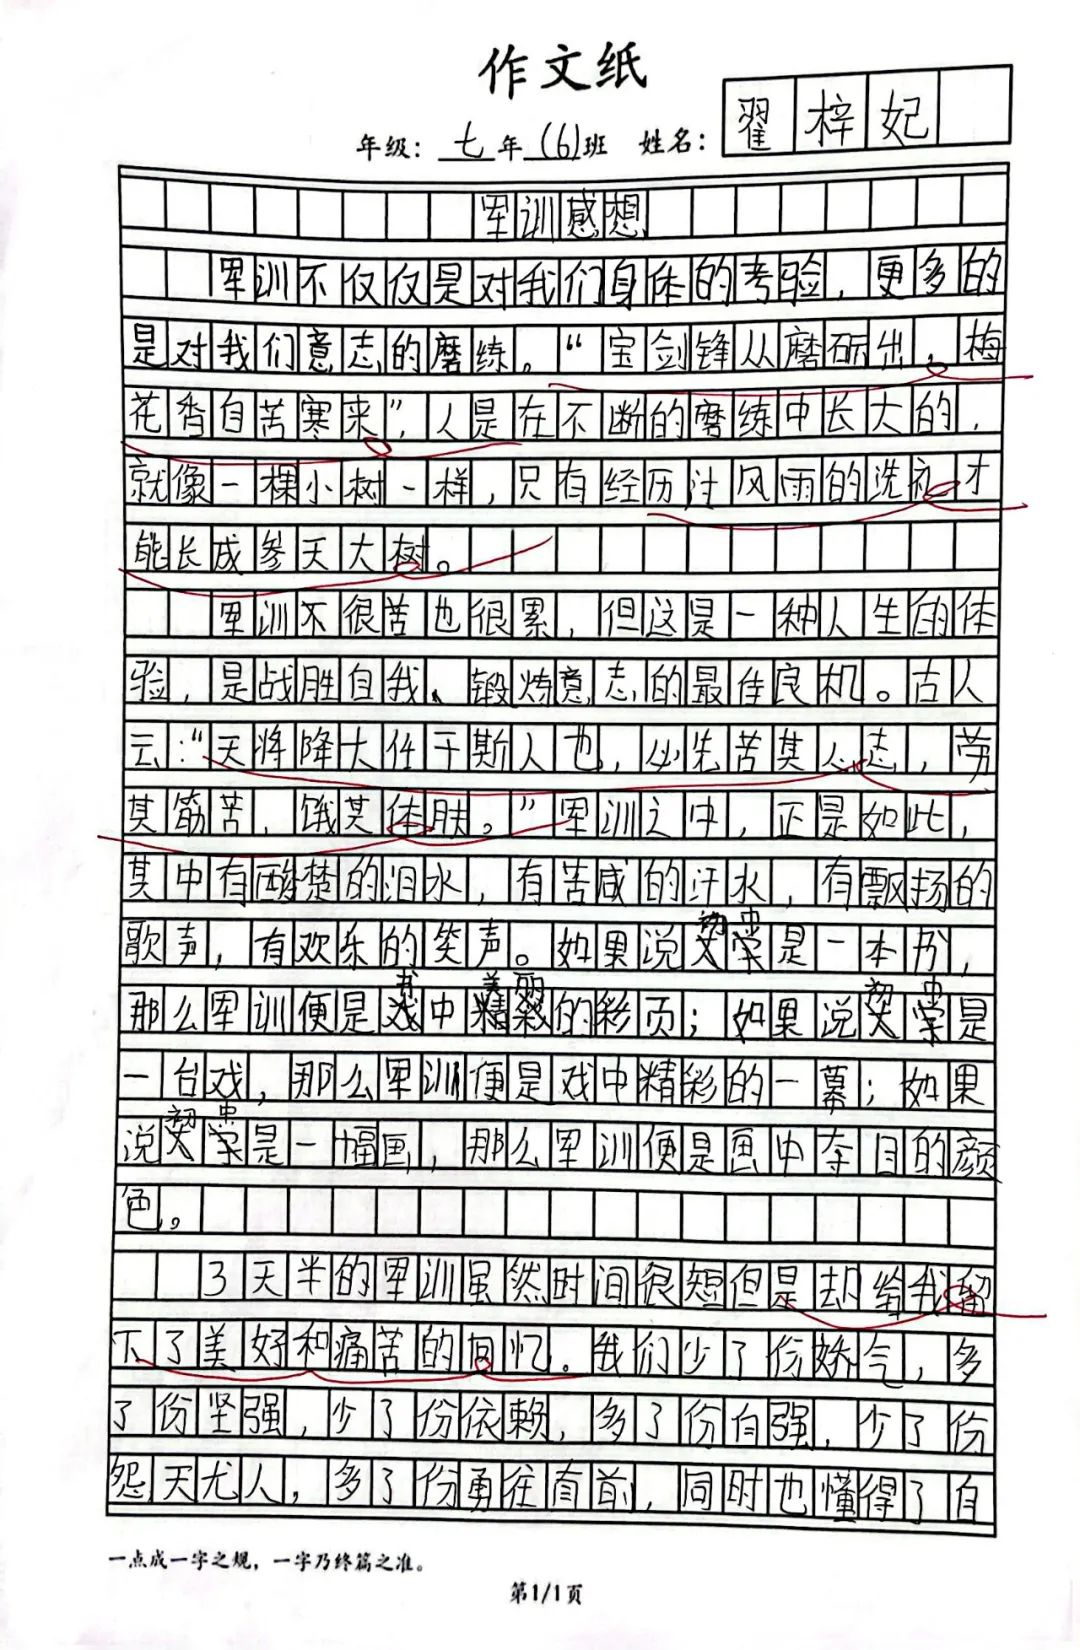 作文纸
年级：七年(6)班 姓名：翟梓妃
军训感想
军训不仅仅是对我们身体的考验，更多的
是对我们意志的磨练。“宝剑锋从磨砺出，梅
花香自苦寒来”，人是在不断的磨练中长大的，
就像一棵小树一样，只有经历过风雨的洗礼才
能长成参天大树。
军训不很苦也很累，但这是一种人生的体
验，是战胜自我、锻炼意志的最佳良机。古人
云：“天将降大任于斯人也，必先苦其心志，劳
其筋苦，饿其体肤。”军训之中，正是如此，
其中有酸楚的泪水，有苦咸的汗水，有飘扬的
歌声，有欢乐的笑声。如果说初中是一本书，
那么军训便是书中美丽的彩页；如果说初中是
一台戏，那么军训便是戏中精彩的一幕；如果
说初中是一幅画，那么军训便是画中夺目的颜
色。
3天半的军训虽然时间很短但是却给我留
下了美好和痛苦的回忆。我们少了份娇气，多
了份坚强，少了份依赖，多了份自强，少了份
怨天尤人，多了份勇往直前，同时也懂得了自
一点成一字之规，一字乃终篇之准。
第1/1页